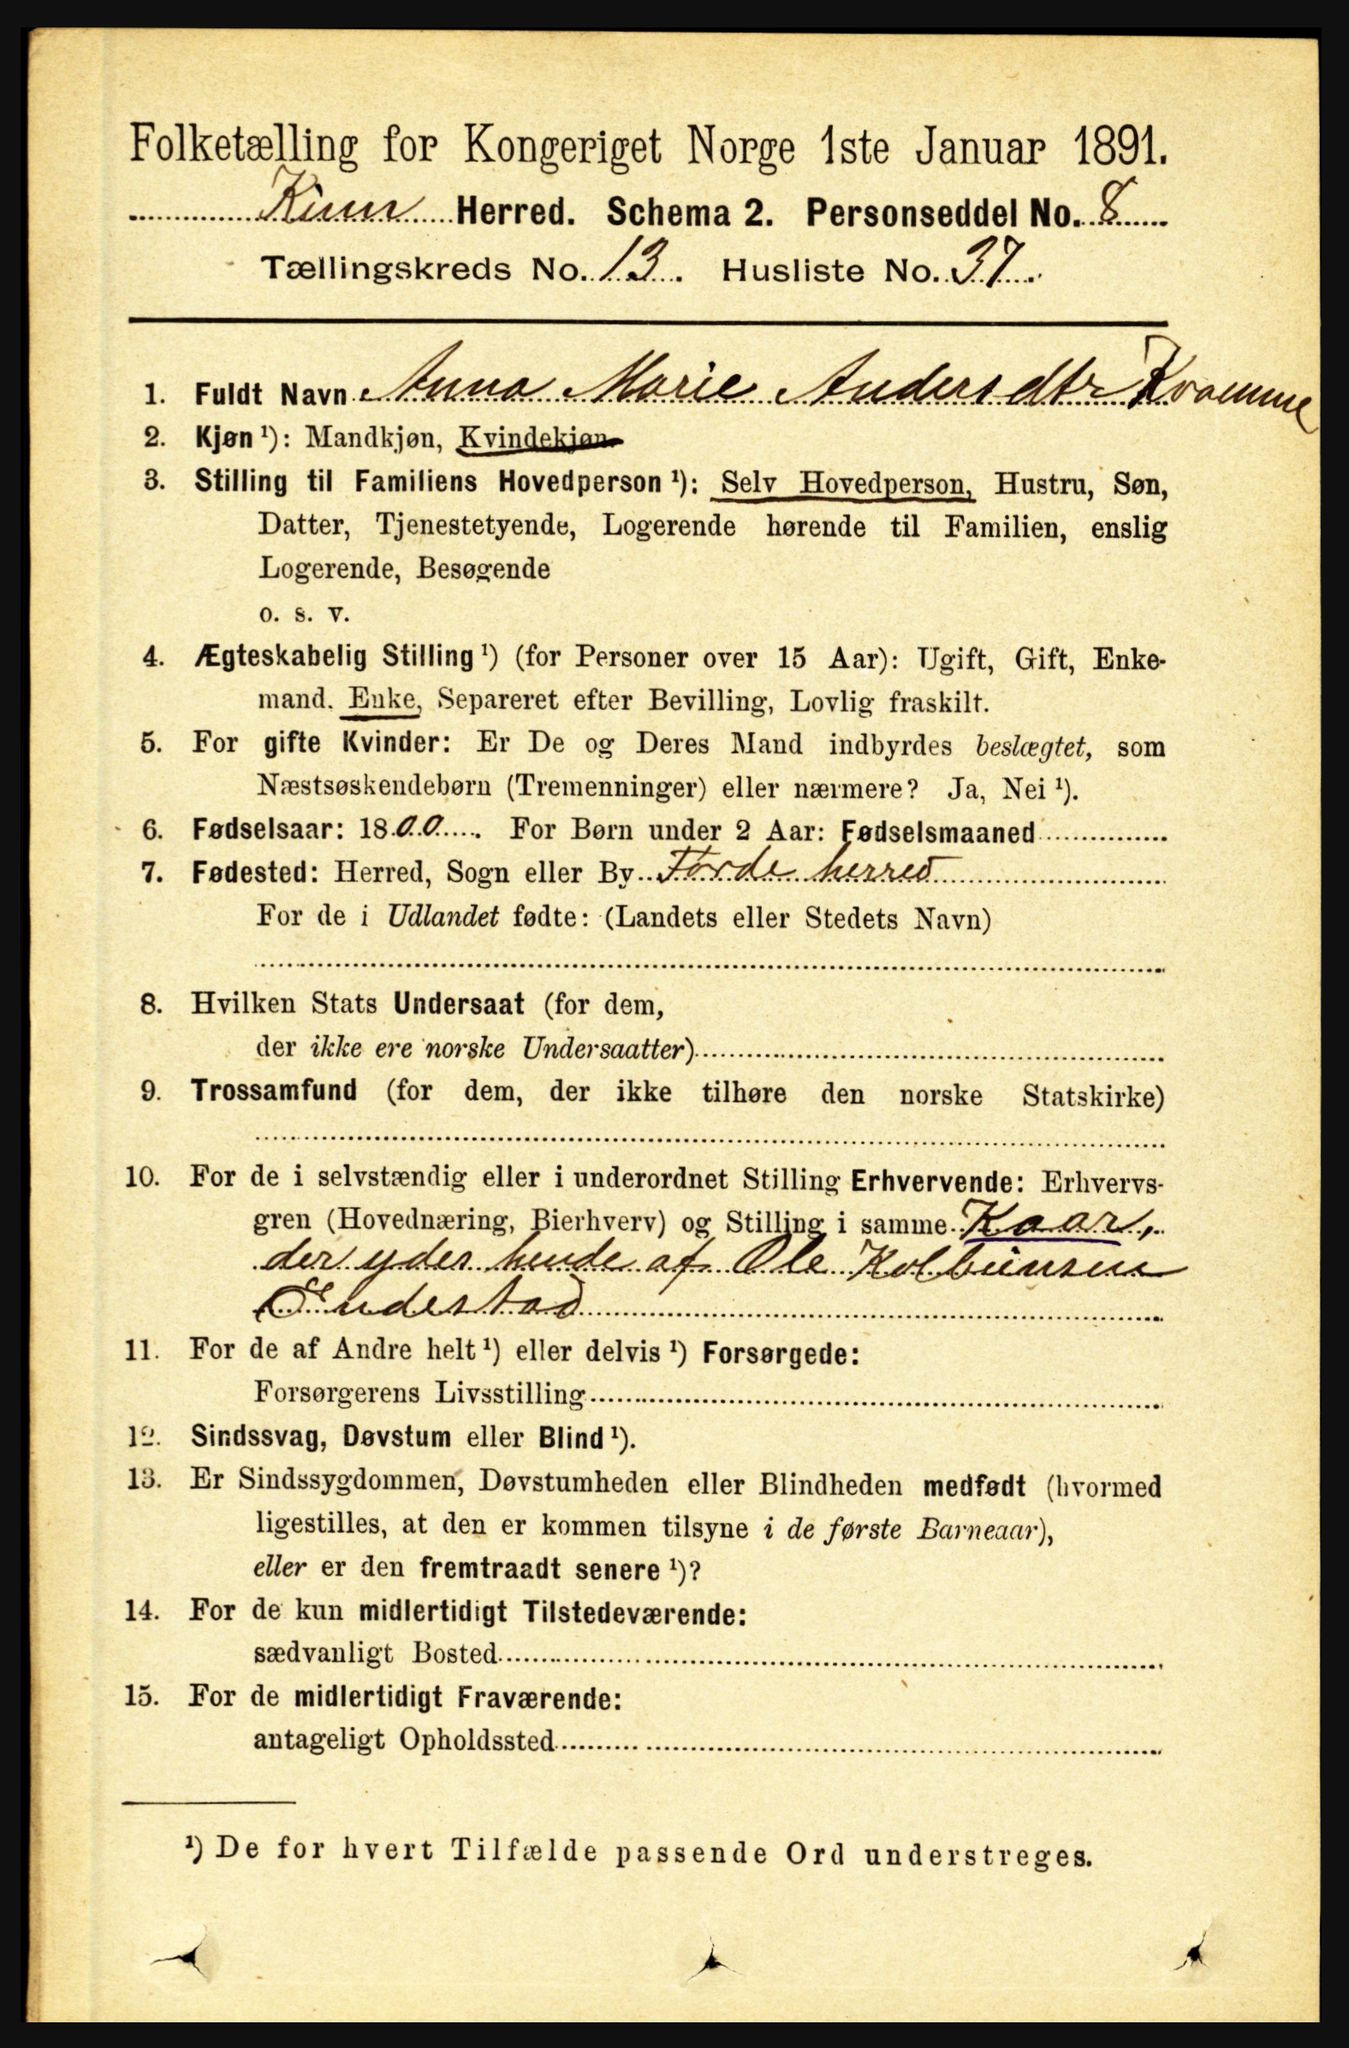 Folketælling for Kongeriget Norge 1ste Januar 1891.
Kinn Herred. Schema 2. Personseddel No. 8
Tællingskreds No. 13. Husliste No. 37.
1. Fuldt Navn Anna Marie Andersdtr Kvamme
2. Kjøn¹): Mandkjøn, Kvindekjøn
3. Stilling til Familiens Hovedperson¹): Selv Hovedperson, Hustru, Søn,
Datter, Tjenestetyende, Logerende hørende til Familien, enslig
Logerende, Besøgende
o. s. v.
4. Ægteskabelig Stilling¹) (for Personer over 15 Aar): Ugift, Gift, Enke-
mand. Enke, Separeret efter Bevilling, Lovlig fraskilt.
5. For gifte Kvinder: Er De og Deres Mand indbyrdes beslægtet, som
Næstsøskendebørn (Tremenninger) eller nærmere? Ja, Nei¹).
6. Fødselsaar: 1800. For Børn under 2 Aar: Fødselsmaaned
7. Fødested: Herred, Sogn eller By Førde herred
For de i Udlandet fødte: (Landets eller Stedets Navn)
8. Hvilken Stats Undersaat (for dem,
der ikke ere norske Undersaatter)
9. Trossamfund (for dem, der ikke tilhøre den norske Statskirke)
10. For de i selvstændig eller i underordnet Stilling Erhvervende: Erhvervs-
gren (Hovednæring, Bierhverv) og Stilling i samme Kaar,
der ydes hende af Ole Kolbeinsen
Endestad
11. For de af Andre helt¹) eller delvis¹) Forsørgede:
Forsørgerens Livsstilling
12. Sindssvag, Døvstum eller Blind¹).
13. Er Sindssygdommen, Døvstumheden eller Blindheden medfødt (hvormed
ligestilles, at den er kommen tilsyne i de første Barneaar),
eller er den fremtraadt senere¹)?
14. For de kun midlertidigt Tilstedeværende:
sædvanligt Bosted
15. For de midlertidigt Fraværende:
antageligt Opholdssted
¹) De for hvert Tilfælde passende Ord understreges.